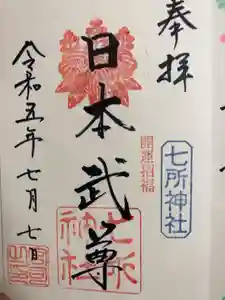 奉拝
開運招福
七所神社
日本武尊
七所神社
令和五年七月七日